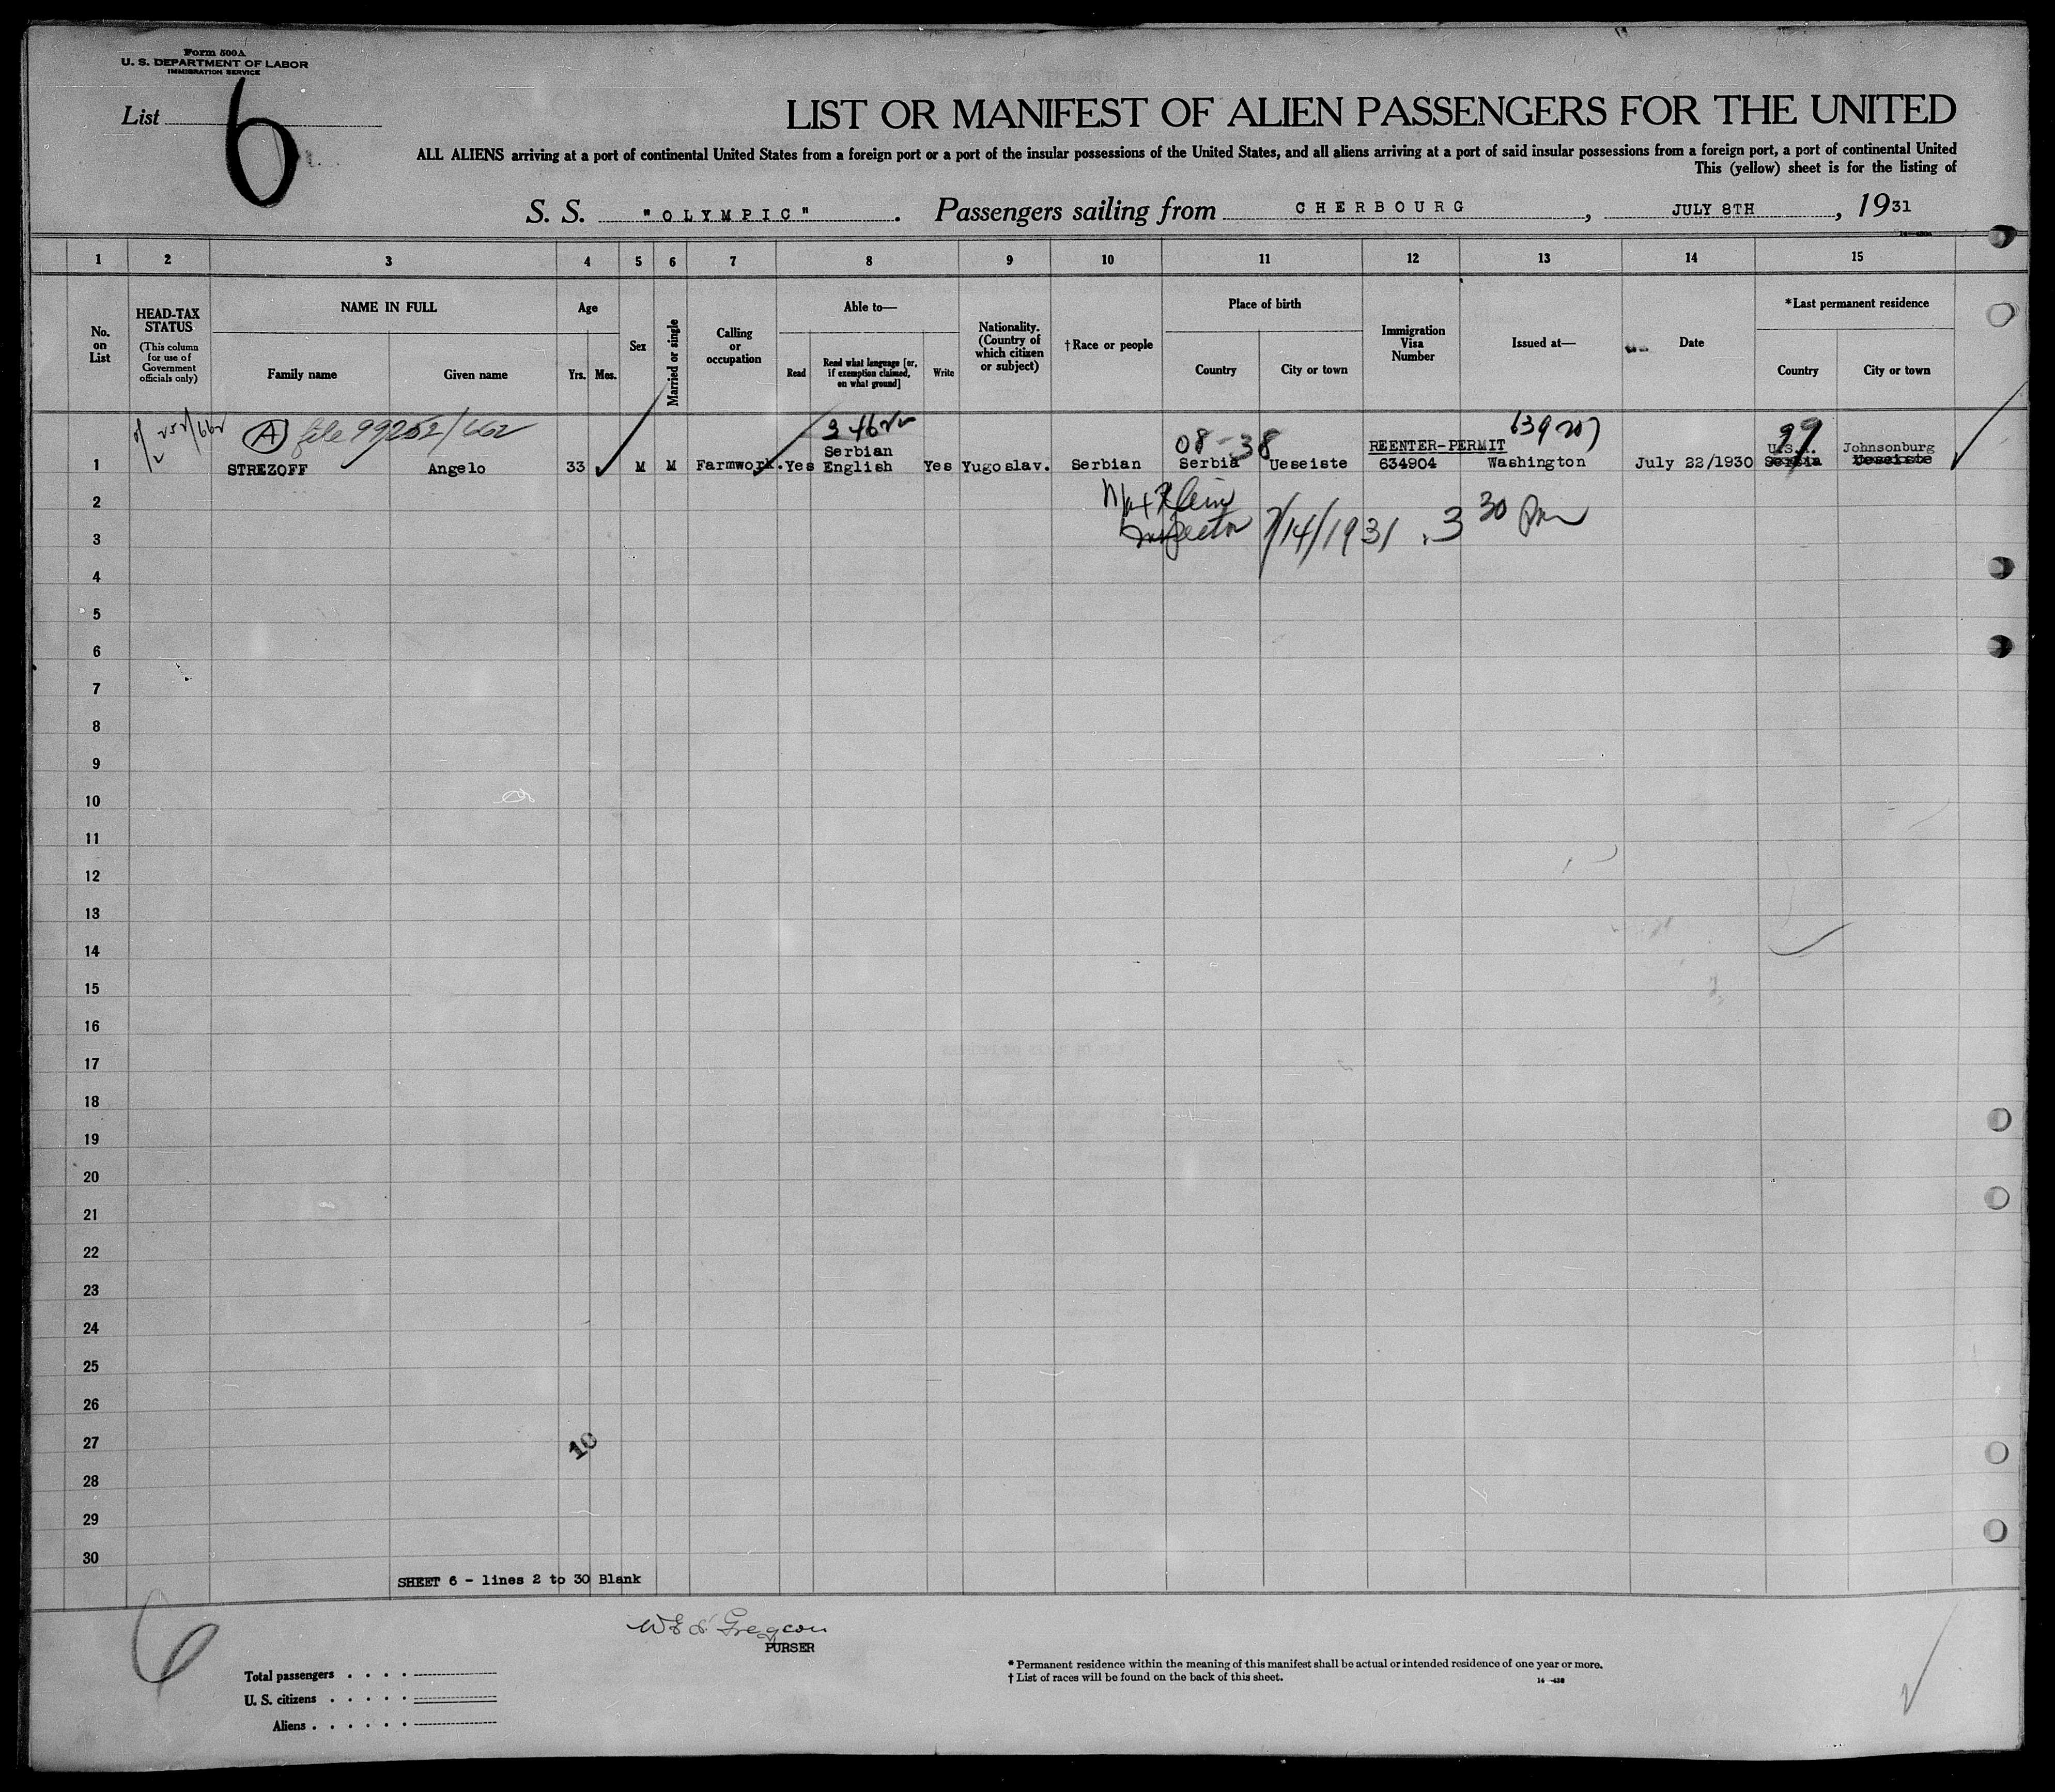 Form 500A
U. S. DEPARTMENT OF LABOR
IMMIGRATION SERVICE
List 6
LIST OR MANIFEST OF ALIEN PASSENGERS FOR THE UNITED
ALL ALIENS arriving at a port of continental United States from a foreign port or a port of the insular possessions of the United States, and all aliens arriving at a port of said insular possessions from a foreign port, a port of continental United
This (yellow) sheet is for the listing of
S. S. "OLYMPIC". Passengers sailing from CHERBOURG, JULY 8TH, 1931
1 2 3 4 5 6 7 8 9 10 11 12 13 14 15
No. on List
HEAD-TAX STATUS
(This column for use of Government officials only)
NAME IN FULL
Family name Given name
Age
Yrs. Mos.
Sex
Married or single
Calling or occupation
Able to—
Read
Read what language [or, if exemption claimed, on what ground]
Write
Nationality. (Country of which citizen or subject)
†Race or people
Place of birth
Country City or town
Immigration Visa Number
Issued at—
Date
*Last permanent residence
Country City or town
A file 99252/662
08-38
99
REENTER-PERMIT
Serbian
U.S.A. Johnsonburg
1 STREZOFF Angelo 33 M M Farmwork. Yes English Yes Yugoslav. Serbian Serbia Ueseiste 634904 Washington July 22/1930 Serbia Ueseiste
2
Inspector 7/14/1931 3 30 pm
3
4
5
6
7
8
9
10
11
12
13
14
15
16
17
18
19
20
21
22
23
24
25
26
27
10
28
29
30
SHEET 6 - lines 2 to 30 Blank
6
PURSER
Total passengers
U. S. citizens
Aliens
* Permanent residence within the meaning of this manifest shall be actual or intended residence of one year or more.
† List of races will be found on the back of this sheet.